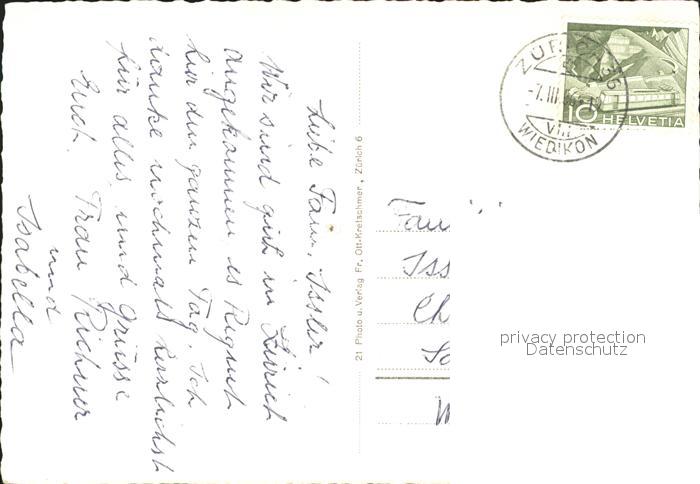 Liebe Fam. Issler!
Wir sind gut in Zürich
angekommen es Regnet
hier den ganzen Tag. Ich
danke nochmals herzlichst
für alles und Grüsse
Euch. Frau Richner
und
Isabella
21 Photo u. Verlag Fr. Ott-Kretschmer, Zürich 6
ZÜRICH 36
-7.III
VIII
WIEDIKON
10 HELVETIA
Fam
Iss
Ch
privacy protection
Datenschutz